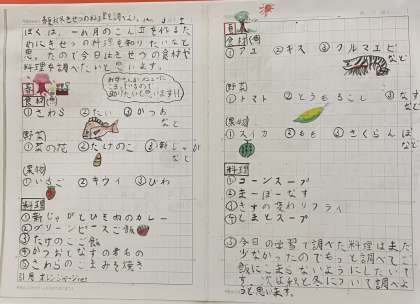 ぼくは、一ヵ月のこん立を作るた
めにきせつの料理を知りたいなと
思ったので今日はきせつの食材や
料理を調べたいと思います。
春
食材(魚)
①さわら ②たい ③かつお
など
野菜
①菜の花 ②たけのこ ③新じゃが
など
果物
①いちご ②キウイ ③びわ
料理
①新じゃがとひき肉のカレー
②グリーンピースご飯
③たけのこご飯
④かつおとなすの煮もの
⑤さわらのごまみそ焼き
夏
食材(魚)
①アユ ②キス ③クルマエビ
など
野菜
①トマト ②とうもろこし ③なす
など
果物
①スイカ ②もも ③さくらんぼ
など
料理
①コーンスープ
②まーぼーなす
③きすの変わりフライ
④とまとスープ
今日の学習で調べた料理はまだ
少なかったのでもっと調べてご
飯にこまらないようにしたいで
す。次は秋と冬について調べよ
うと思います。